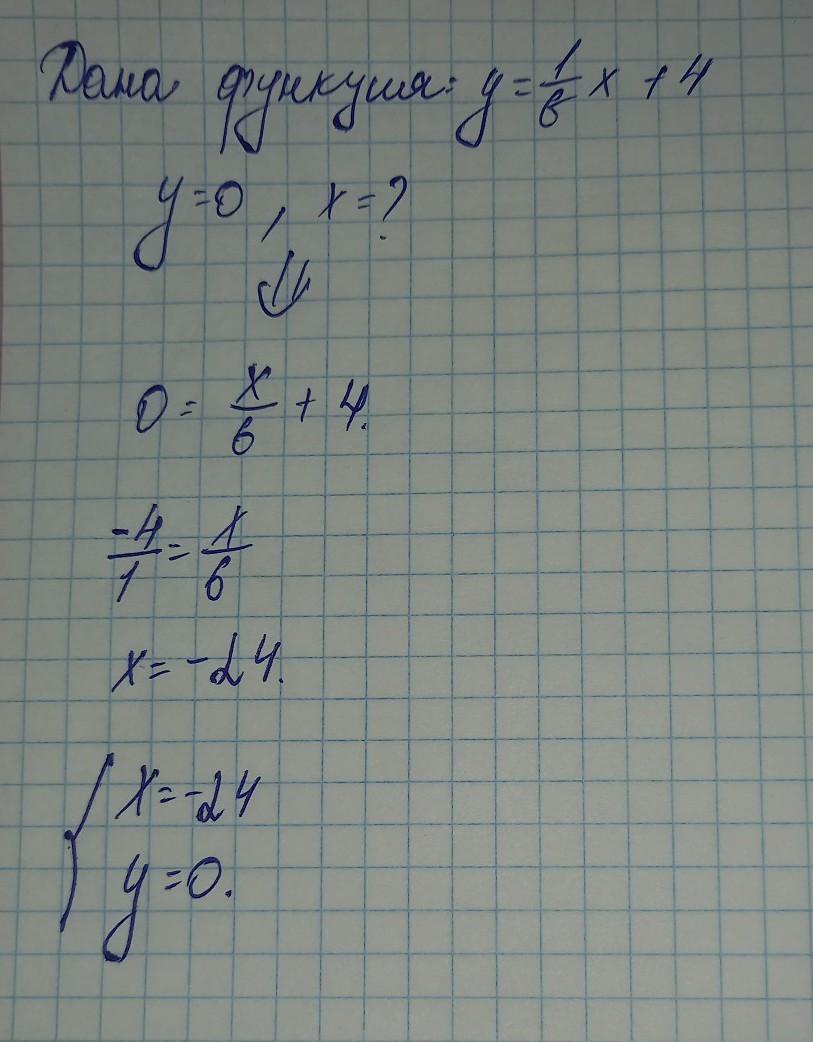 Дана функция: y = 1/6 x + 4
y=0, x=?
⇓
0 = x/6 + 4.
-4/1 = x/6
x = -24.
{ x = -24
y = 0.